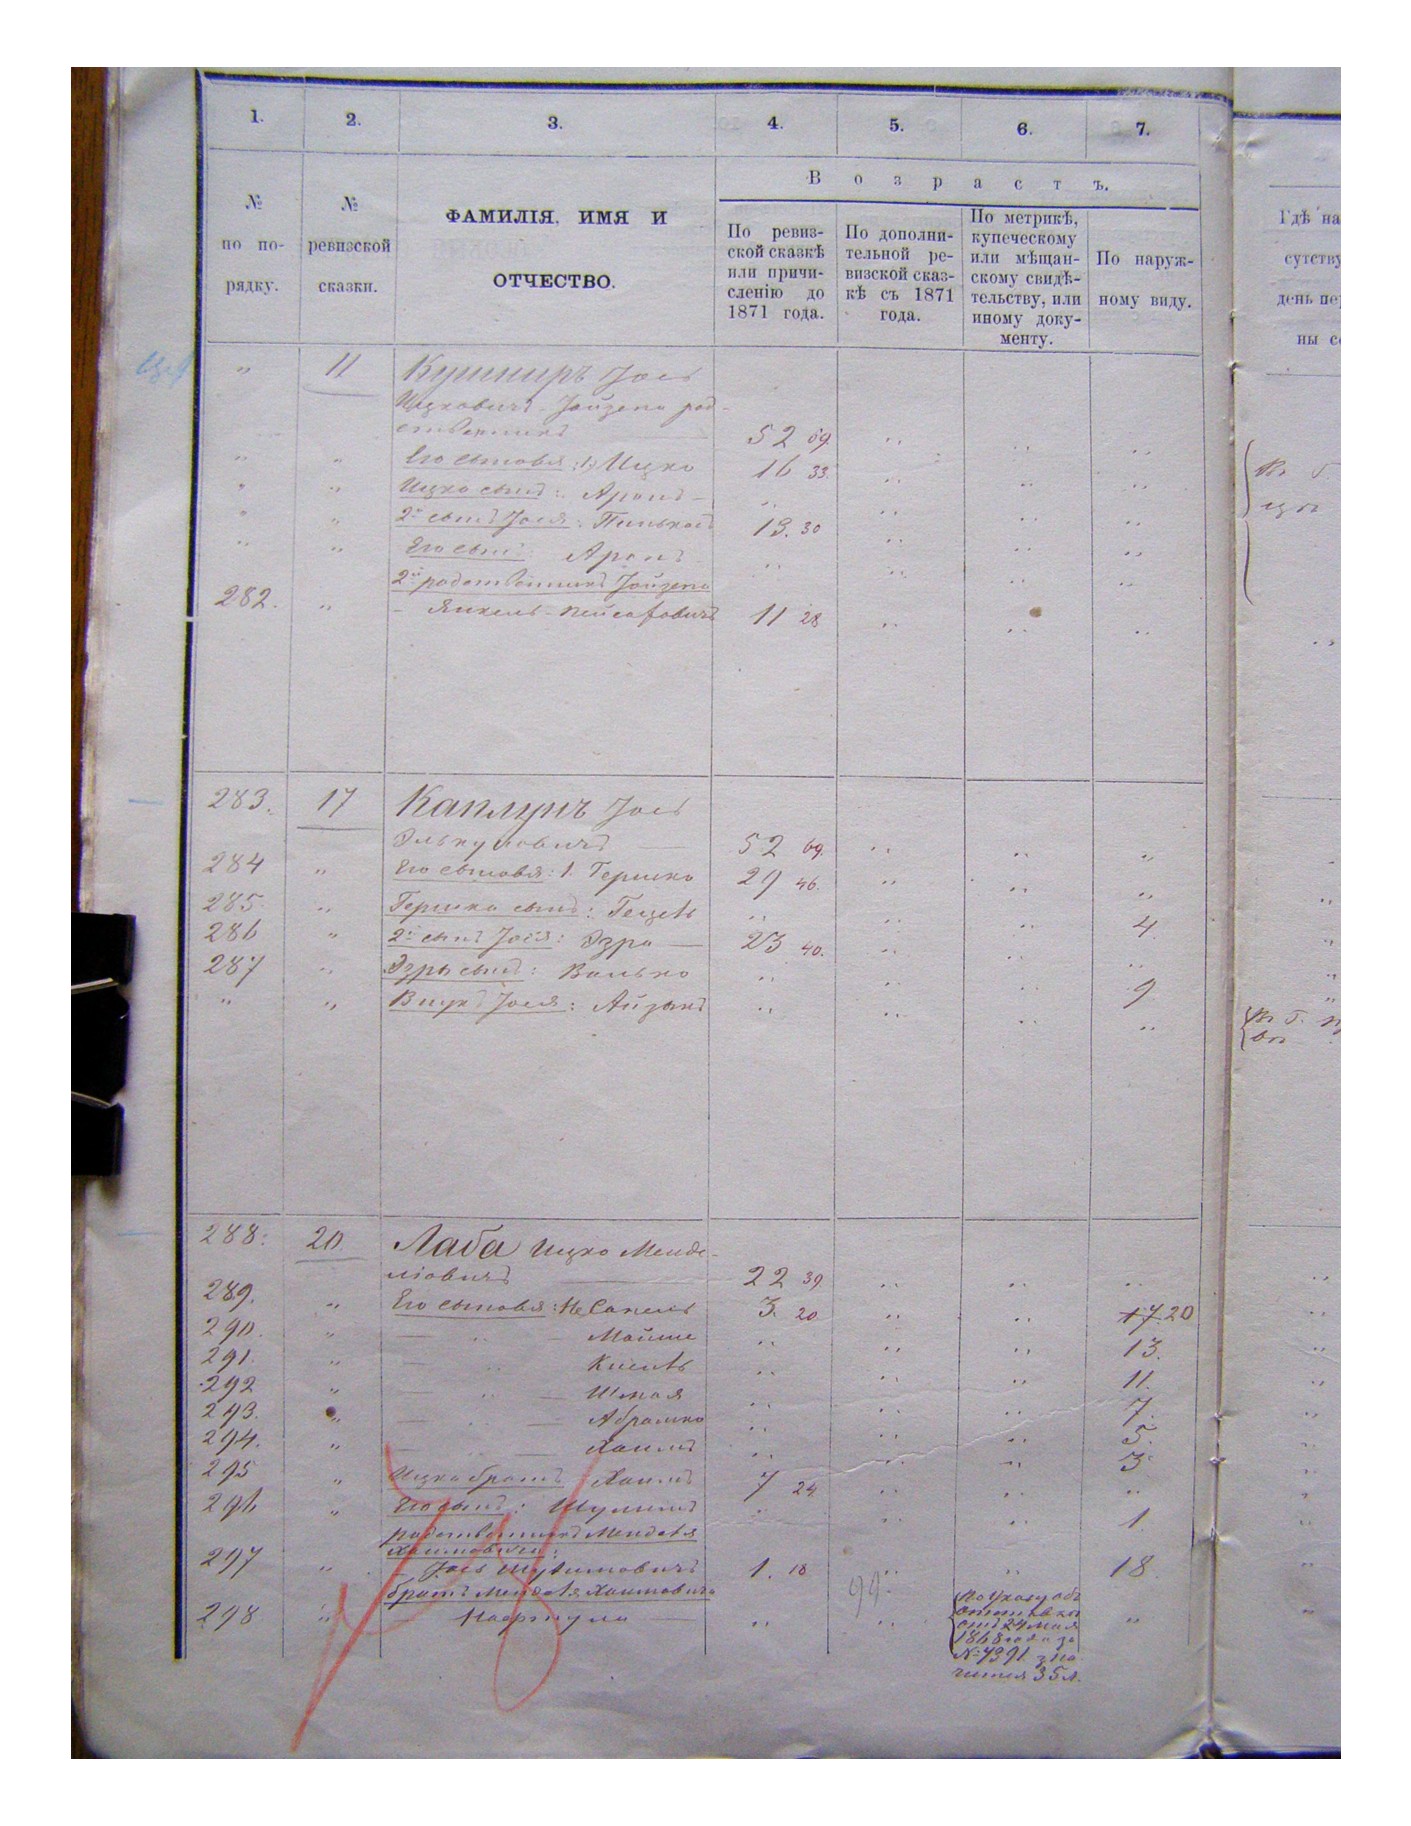 1. 2. 3. 4. 5. 6. 7.
№ по порядку.
№ ревизской сказки.
ФАМИЛІЯ, ИМЯ И
ОТЧЕСТВО.
В о з р а с т ъ.
По ревиз-
ской сказкѣ
или причи-
сленію до
1871 года.
По дополни-
тельной ре-
визской сказ-
кѣ съ 1871
года.
По метрикѣ,
купеческому
или мѣщан-
скому свидѣ-
тельству, или
иному доку-
менту.
По наруж-
ному виду.
Гдѣ на
сутству
день пе
ны с
" 11 Кушниръ Іось
Ицковичъ - Іойзепа род-
ственникъ 52 69. " " "
" " Его сыновья: 1) Ицко 16 33. " " "
" " Ицко сынъ: Аронъ " " " "
" " 2й сынъ Іося: Пинькасъ 13. 30 " " "
" " Его сынъ: Аронъ " " " "
2й родственникъ Іойзепа
282. " - Янкель 11 28 " " "
283. 17 Каплунъ Іось
52 69. " " "
284 " Его сыновья: 1. Гершко 29 46. " " "
285 " Гершка сынъ: Гецель " " " 4
286 " 2й сынъ Іося: Эзра 23 40. " " "
287 " Эзры сынъ: Волько " " " 9
" " Внукъ Іося: Айзыкъ " " " "
288. 20 Лаба Ицко Менде-
ліовичъ 22 39. " " "
289. " Его сыновья: Сапель 3. 20 " " 17 20
290. " Мойше " " " 13.
291. " Кисель " " " 11.
292 " Шмая " " " 7.
293. " Абрамко " " " 5.
294. " Хаимъ " " " 3.
295 " Ицка братъ Хаимъ 7 24 " " "
296 " Его сынъ: Шулимъ " " " 1.
родственникъ Менделя
Хаимовича:
297 " Іось Шулимовичъ 1. 18 " " 18.
братъ Менделя Хаимовича
298 " " " "
99
По Указу
24 мая
1868 года за
№ 7391 зна-
чится 35 л.